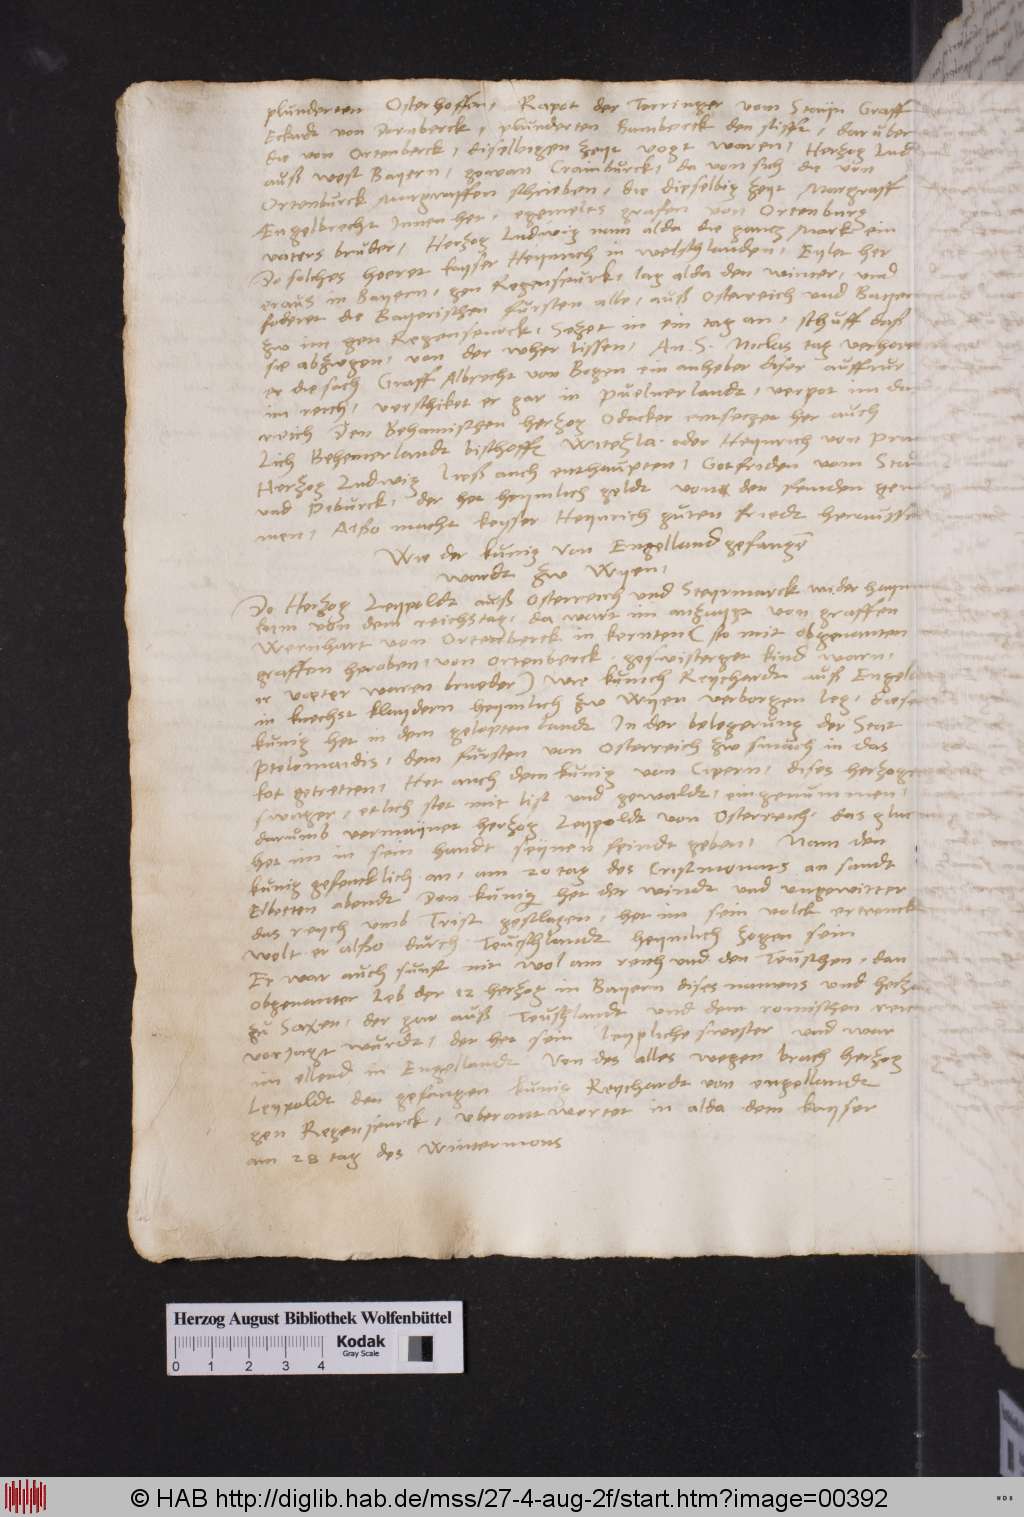 plunderten Osterhoffen, Rapot der Torringer vom Stayn Graff
Eckadt von Dornberck, plunderten Bamberck den stifft, darüber
die von Ortenberck, diselbigen zeyt vogt waren, Herzog Lud
auß west Bayern, gewan Craiburck, da von sich die von
Ortenburck Margraffen schrieben, die dieselbig zeyt Margraff
Engelbrecht Innen her, egemeltes grafen von Ortenburg
vaters bruder, Herzog Ludwig nam alda die gantz Mark ein
Do solches heeret kayser Heynrich in welschlanden, Eylet her
eraus in Bayern, gen Regenspurk, lag alda den winter, und
foderet die Bayerischen fursten alle, auß Osterreich und Bayer
zw im gen Regenspurck, Sezet in ein tag an, schuff daß
sie abzugen, von der wher lissen, An S. Niclas tag verhoret
er die sach Graff Albrecht von Bogen ein anheber diser auffrur
im reich, verschiket er gar in puelnerlandt, verpot im da
reich Den Behamischen herzog Odacker entsezet her auch
Lich Behemerlandt bischoff Witezla oder Heynrich von Pra
Herzog Ludwig ließ auch enthaupten, Gotfriden vom Stu
und Piburck, der het heymlich geldt von den feinden gen
men, Also macht keyser Heynrich guten friedt heraussen
Wie der kunig von Engelland gefangē
wardt zw Wyen,
Do Herzog Leypoldt auß Osterreich und Steyrmarck wider haym
kam von dem reichstag, da wart im anzaygt von graffen
Wernhart von Ortenberck in kernten (so mit obgenanten
graffen heroben, von Ortenberck, geswistergot kind warn,
ir vaeter waren brueder) wie kunich Reychardt auß Engell
in knechst klaydern heymlich zw Wyen verborgen leg, diese
kunig het in dem gelopten landt In der belegerung der Stat
Ptolomaidis, dem fursten von Osterreich zw smach in das
kot getretten, Het auch dem kunig von Cipern, dises herzoge
swager, etlich stet mit list und gewaldt, eingenummen,
darumb vermaynet herzog Leypoldt von Osterreich, das gluc
het im in sein handt seynen feindt geben, Nam den
kunig gefencklich an, am 20 tag des Cristmonats an sandt
Elbetten abendt Den kunig het der windt und ungewitter
das reych umb Trist geslagen, het im sein volck ertrenckt
wolt er alßo durch Teuschlandt heymlich zogen sein
Er war auch sunst nit wol am reich und den Teuschen, dan
obgenanter Leb der 12 herzog in Bayern dises namens und herzo
zu Saxen, der gar auß Teuschlandt und dem romischen rei
vorjagt wurdt, der het sein leypliche swester und war
im ellend in Engellandt Von des alles wegen brach herzog
Leypoldt den gefangen kunig Reychardt von engellandt
gen Regenspurck, uberantwortet in alda dem kayser
am 28 tag des Wintermons
Herzog August Bibliothek Wolfenbüttel
0 1 2 3 4
Kodak
Gray Scale
© HAB http://diglib.hab.de/mss/27-4-aug-2f/start.htm?image=00392